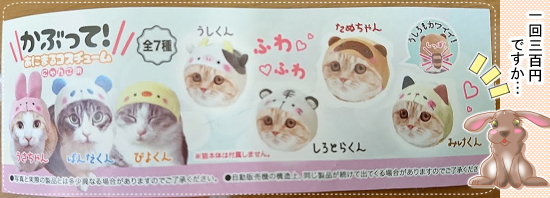 かぶって!
あにまるコスチューム
全7種
うさちゃん
ぱんだくん
ぴよくん
うしくん
ふわ
ふわ
※猫本体は付属しません。
たぬちゃん
しろとらくん
うしろもカワイイ!
しっぽ
みけくん
●写真と実際の製品とは多少異なる場合がありますのでご了承ください。
●自動販売機の構造上、同じ製品が続けて出てくる場合がありますのでご了承ください。
一回三百円
ですか…